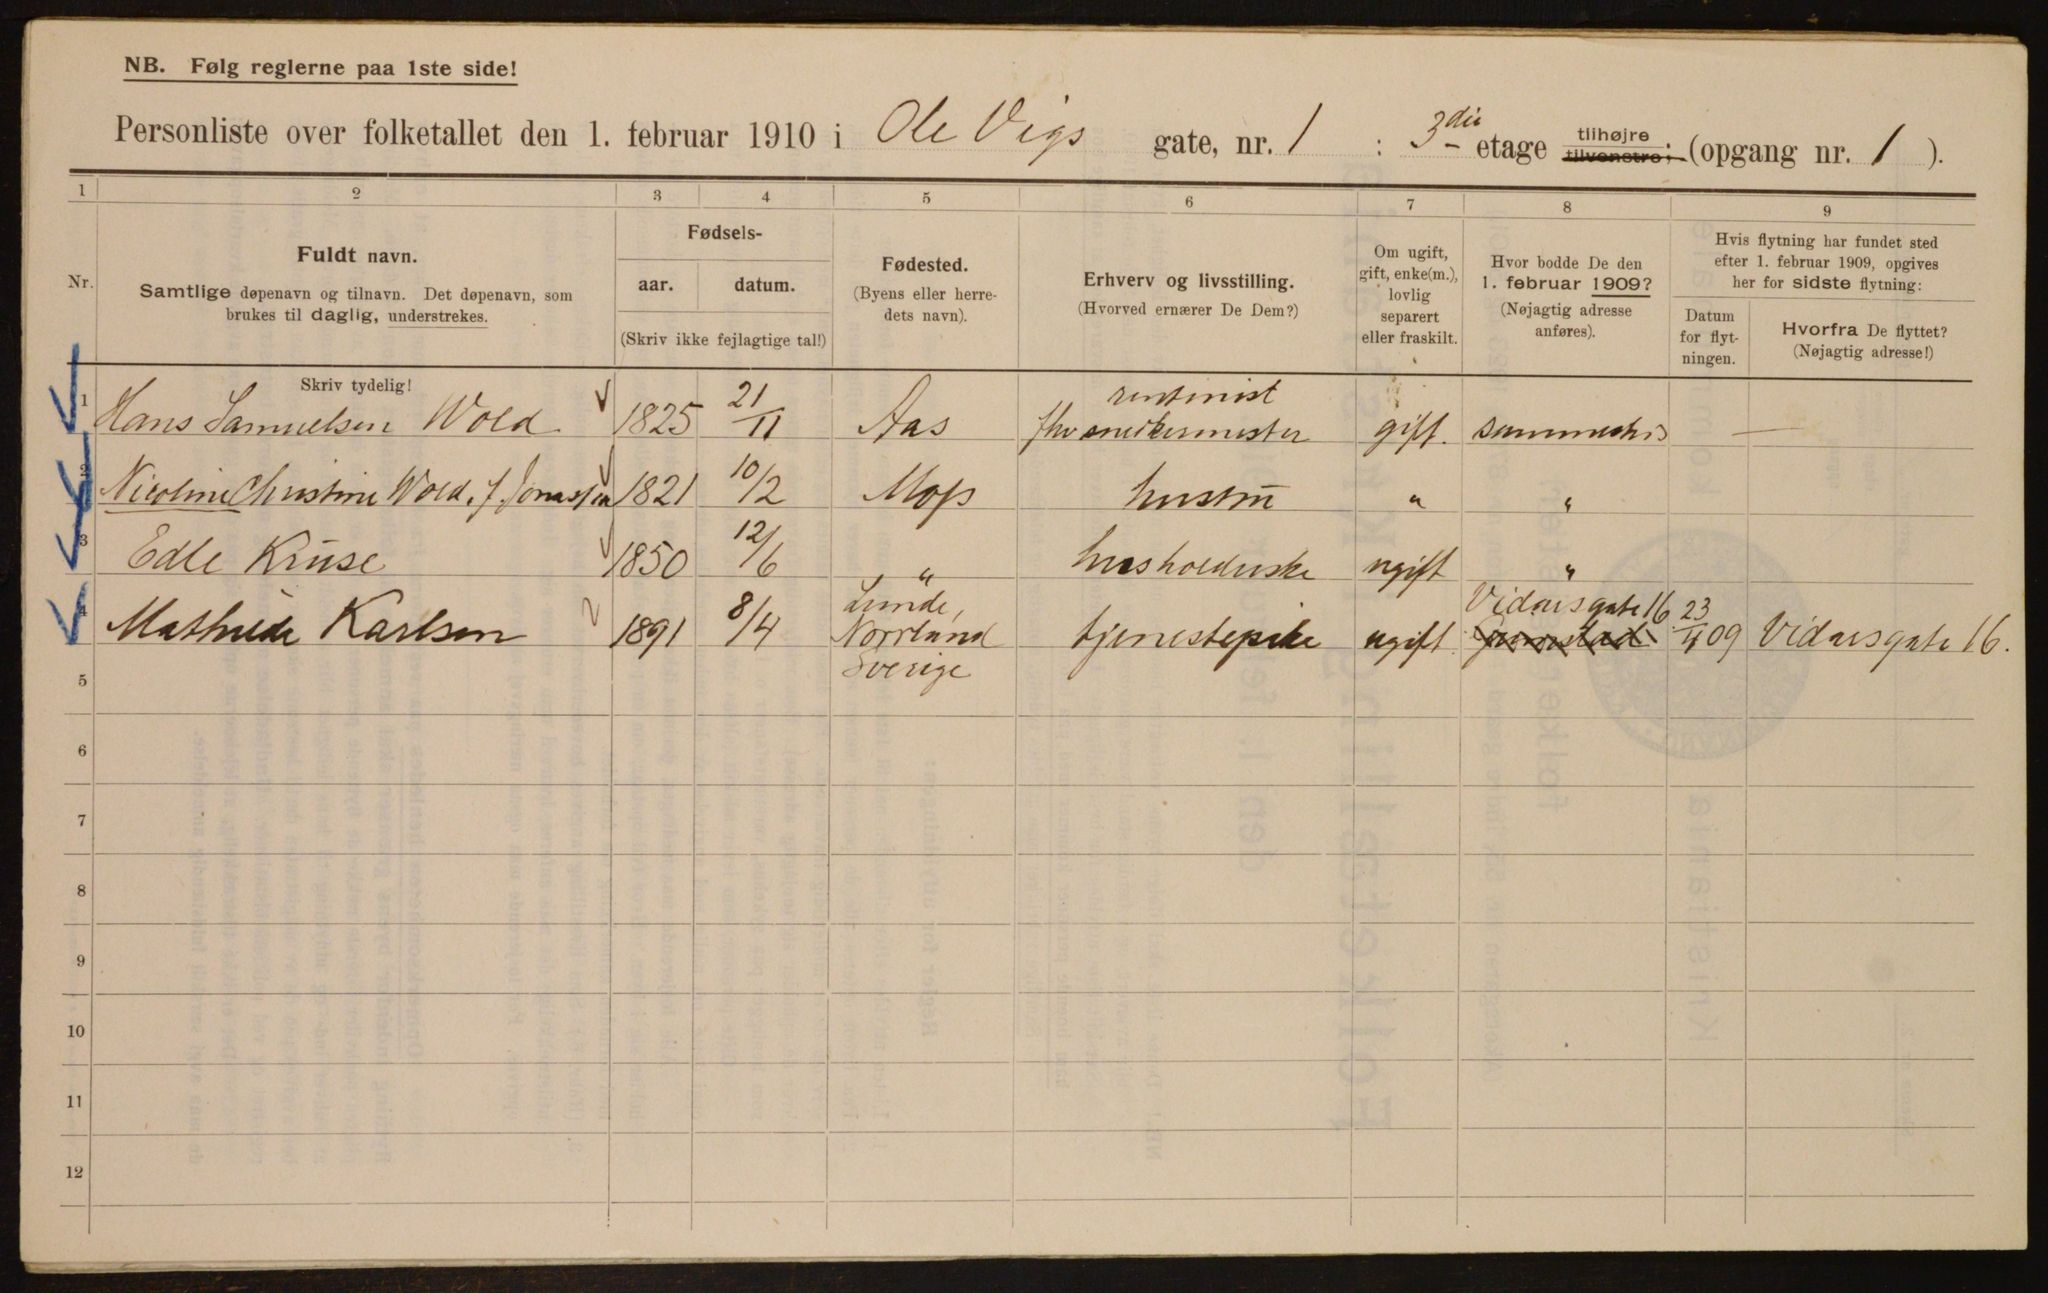 NB. Følg reglerne paa 1ste side!
Personliste over folketallet den 1. februar 1910 i Ole Vigs gate, nr. 1 : 3die etage tilhøjre tilvenstre; (opgang nr. 1 ).
1 2 3 4 5 6 7 8 9
Nr.
Fuldt navn.
Samtlige døpenavn og tilnavn. Det døpenavn, som
brukes til daglig, understrekes.
Fødsels-
aar. datum.
(Skriv ikke fejlagtige tal!)
Fødested.
(Byens eller herre-
dets navn).
Erhverv og livsstilling.
(Hvorved ernærer De Dem?)
Om ugift,
gift, enke(m.),
lovlig
separert
eller fraskilt.
Hvor bodde De den
1. februar 1909?
(Nøjagtig adresse
anføres).
Hvis flytning har fundet sted
efter 1. februar 1909, opgives
her for sidste flytning:
Datum
for flyt-
ningen.
Hvorfra De flyttet?
(Nøjagtig adresse!)
Skriv tydelig!
rentenist
1 Hans Samuelsen Wold 1825 21/11 Aas fhv snekermester gift. sammesteds —
2 Nicoline Christine Wold, f. Jonassen 1821 10/2 Moss hustru " "
3 Edle Kruse 1850 12/6 " husholderske ugift "
Lunde, Vidarsgate 16
4 Mathilde Karlsen 1891 8/4 Norrland tjenestepike ugift 23/4 09 Vidarsgate 16.
Sverige
5
6
7
8
9
10
11
12